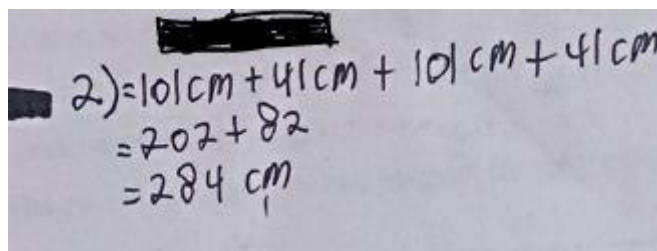 2.)=101cm+41cm+101cm+41cm
=202+82
=284 cm